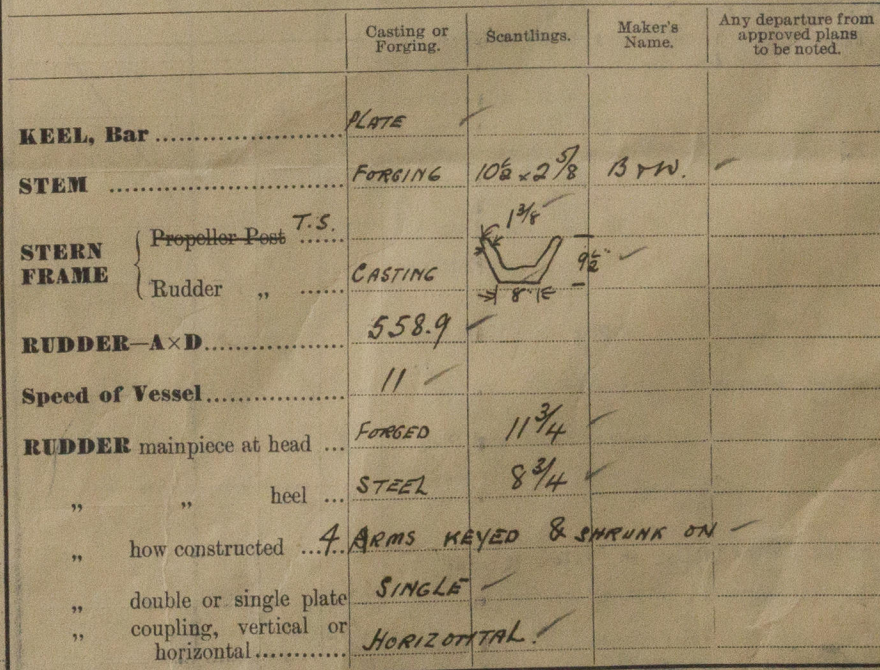 Casting or Forging. Scantlings. Maker's Name. Any departure from approved plans to be noted.
KEEL, Bar PLATE
STEM FORGING 10½ x 2 5/8 B & W.
STERN FRAME { Propeller Post T.S. 1 3/8
Rudder „ CASTING 8" 9½"
RUDDER—A×D 558.9
Speed of Vessel 11
RUDDER mainpiece at head FORGED 11 3/4
„ „ heel STEEL 8 3/4
„ how constructed 4 ARMS KEYED & SHRUNK ON
„ double or single plate SINGLE
„ coupling, vertical or horizontal HORIZONTAL.